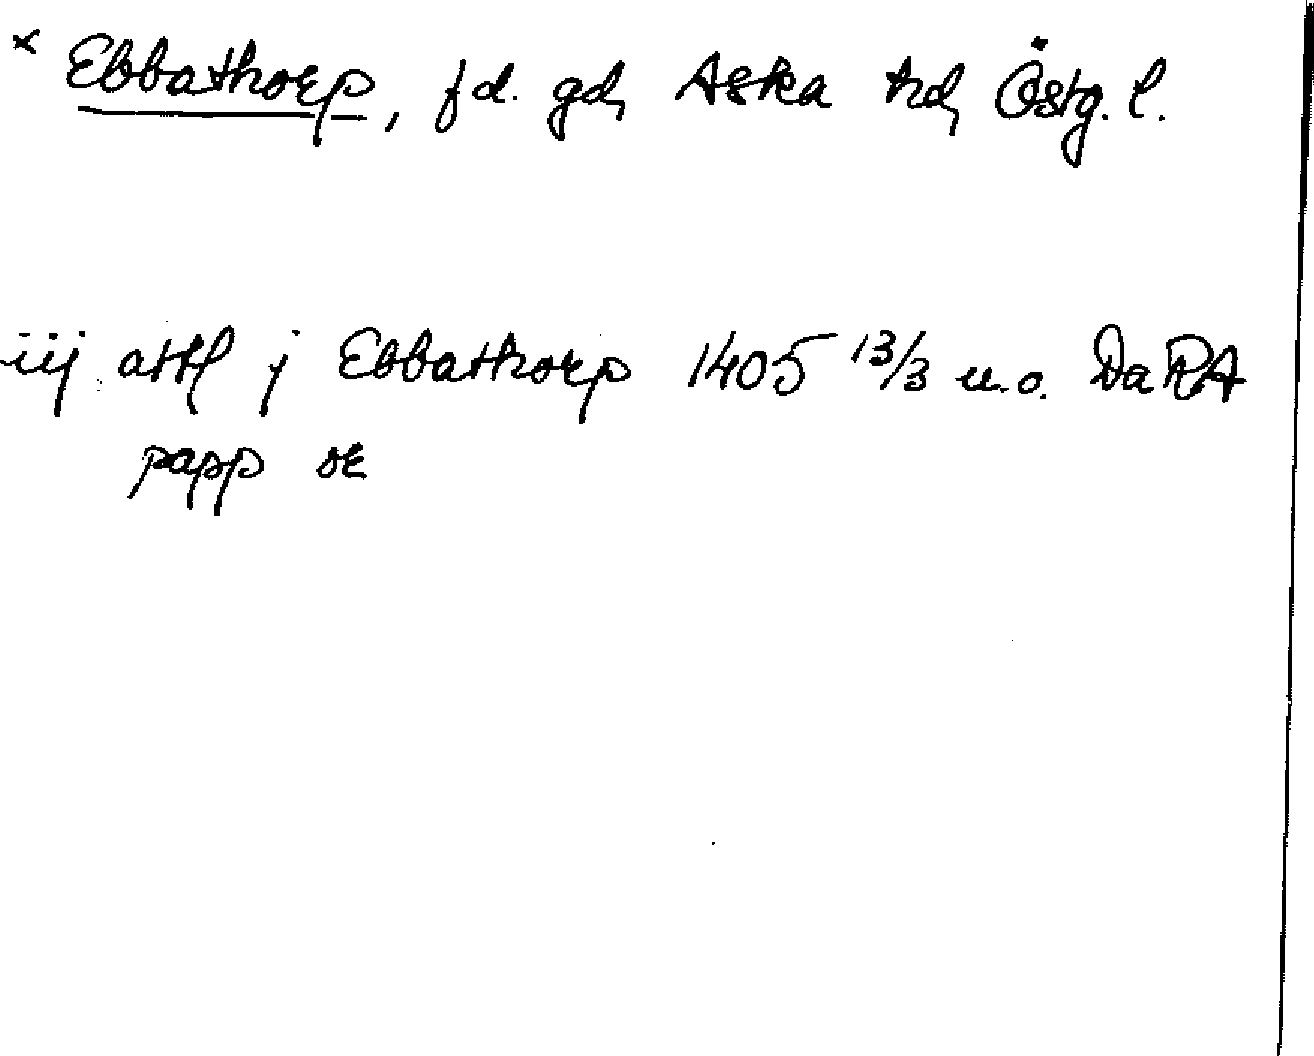 × Ebbathorp, fd. gd, Aska hd, Östg. l.
iij attl j Ebbathorp 1405 13/3 u.o. DaRA
papp or